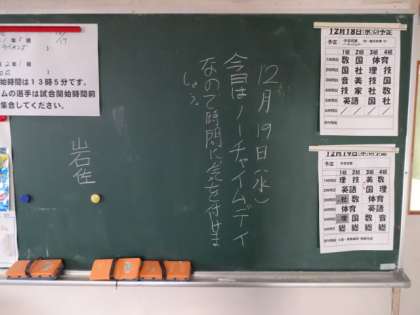 12月19日(水)
今日はノーチャイムデイ
なので時間に気を付けま
しょう
岩佐
開始時間は13時5分です。
ムの選手は試合開始時間前
集合してください。
12月18日
予定
1組 2組 3組 4組
数 国 体育
国 社 理 技
音 美 技 国
技 家 社 数
英語 国 社
12月19日
予定
1組 2組 3組 4組
理 技 美 数
英語 国 理
社 数 体育
体育 英語
理 国 数 音
総 総 総 総